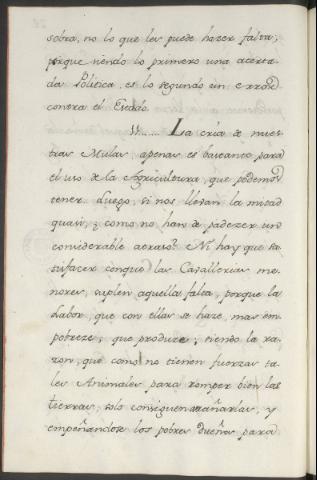 sobra, no lo que les puede hazer falta;
porque siendo lo primero una acerta-
da Politica, es lo segundo un error
contra el Estado.
La cria de nues-
tras Mulas, apenas es bastante para
el uso de la Agricultura, que podemos
tener. Luego, si nos llevan la mitad
quasi, ¿como no han de padezer un
considerable atraso? Ni hay que sa-
tisfacer conque las Cavallerias me-
nores, suplen aquella falta, porque la
Labor, que con ellas se haze, mas em-
pobreze, que produce; siendo la ra-
zon, que como no tienen fuerzas ta-
les Animales para romper bien las
tierras, solo consiguen arañarlas, y
empeñandose los pobres Dueños para